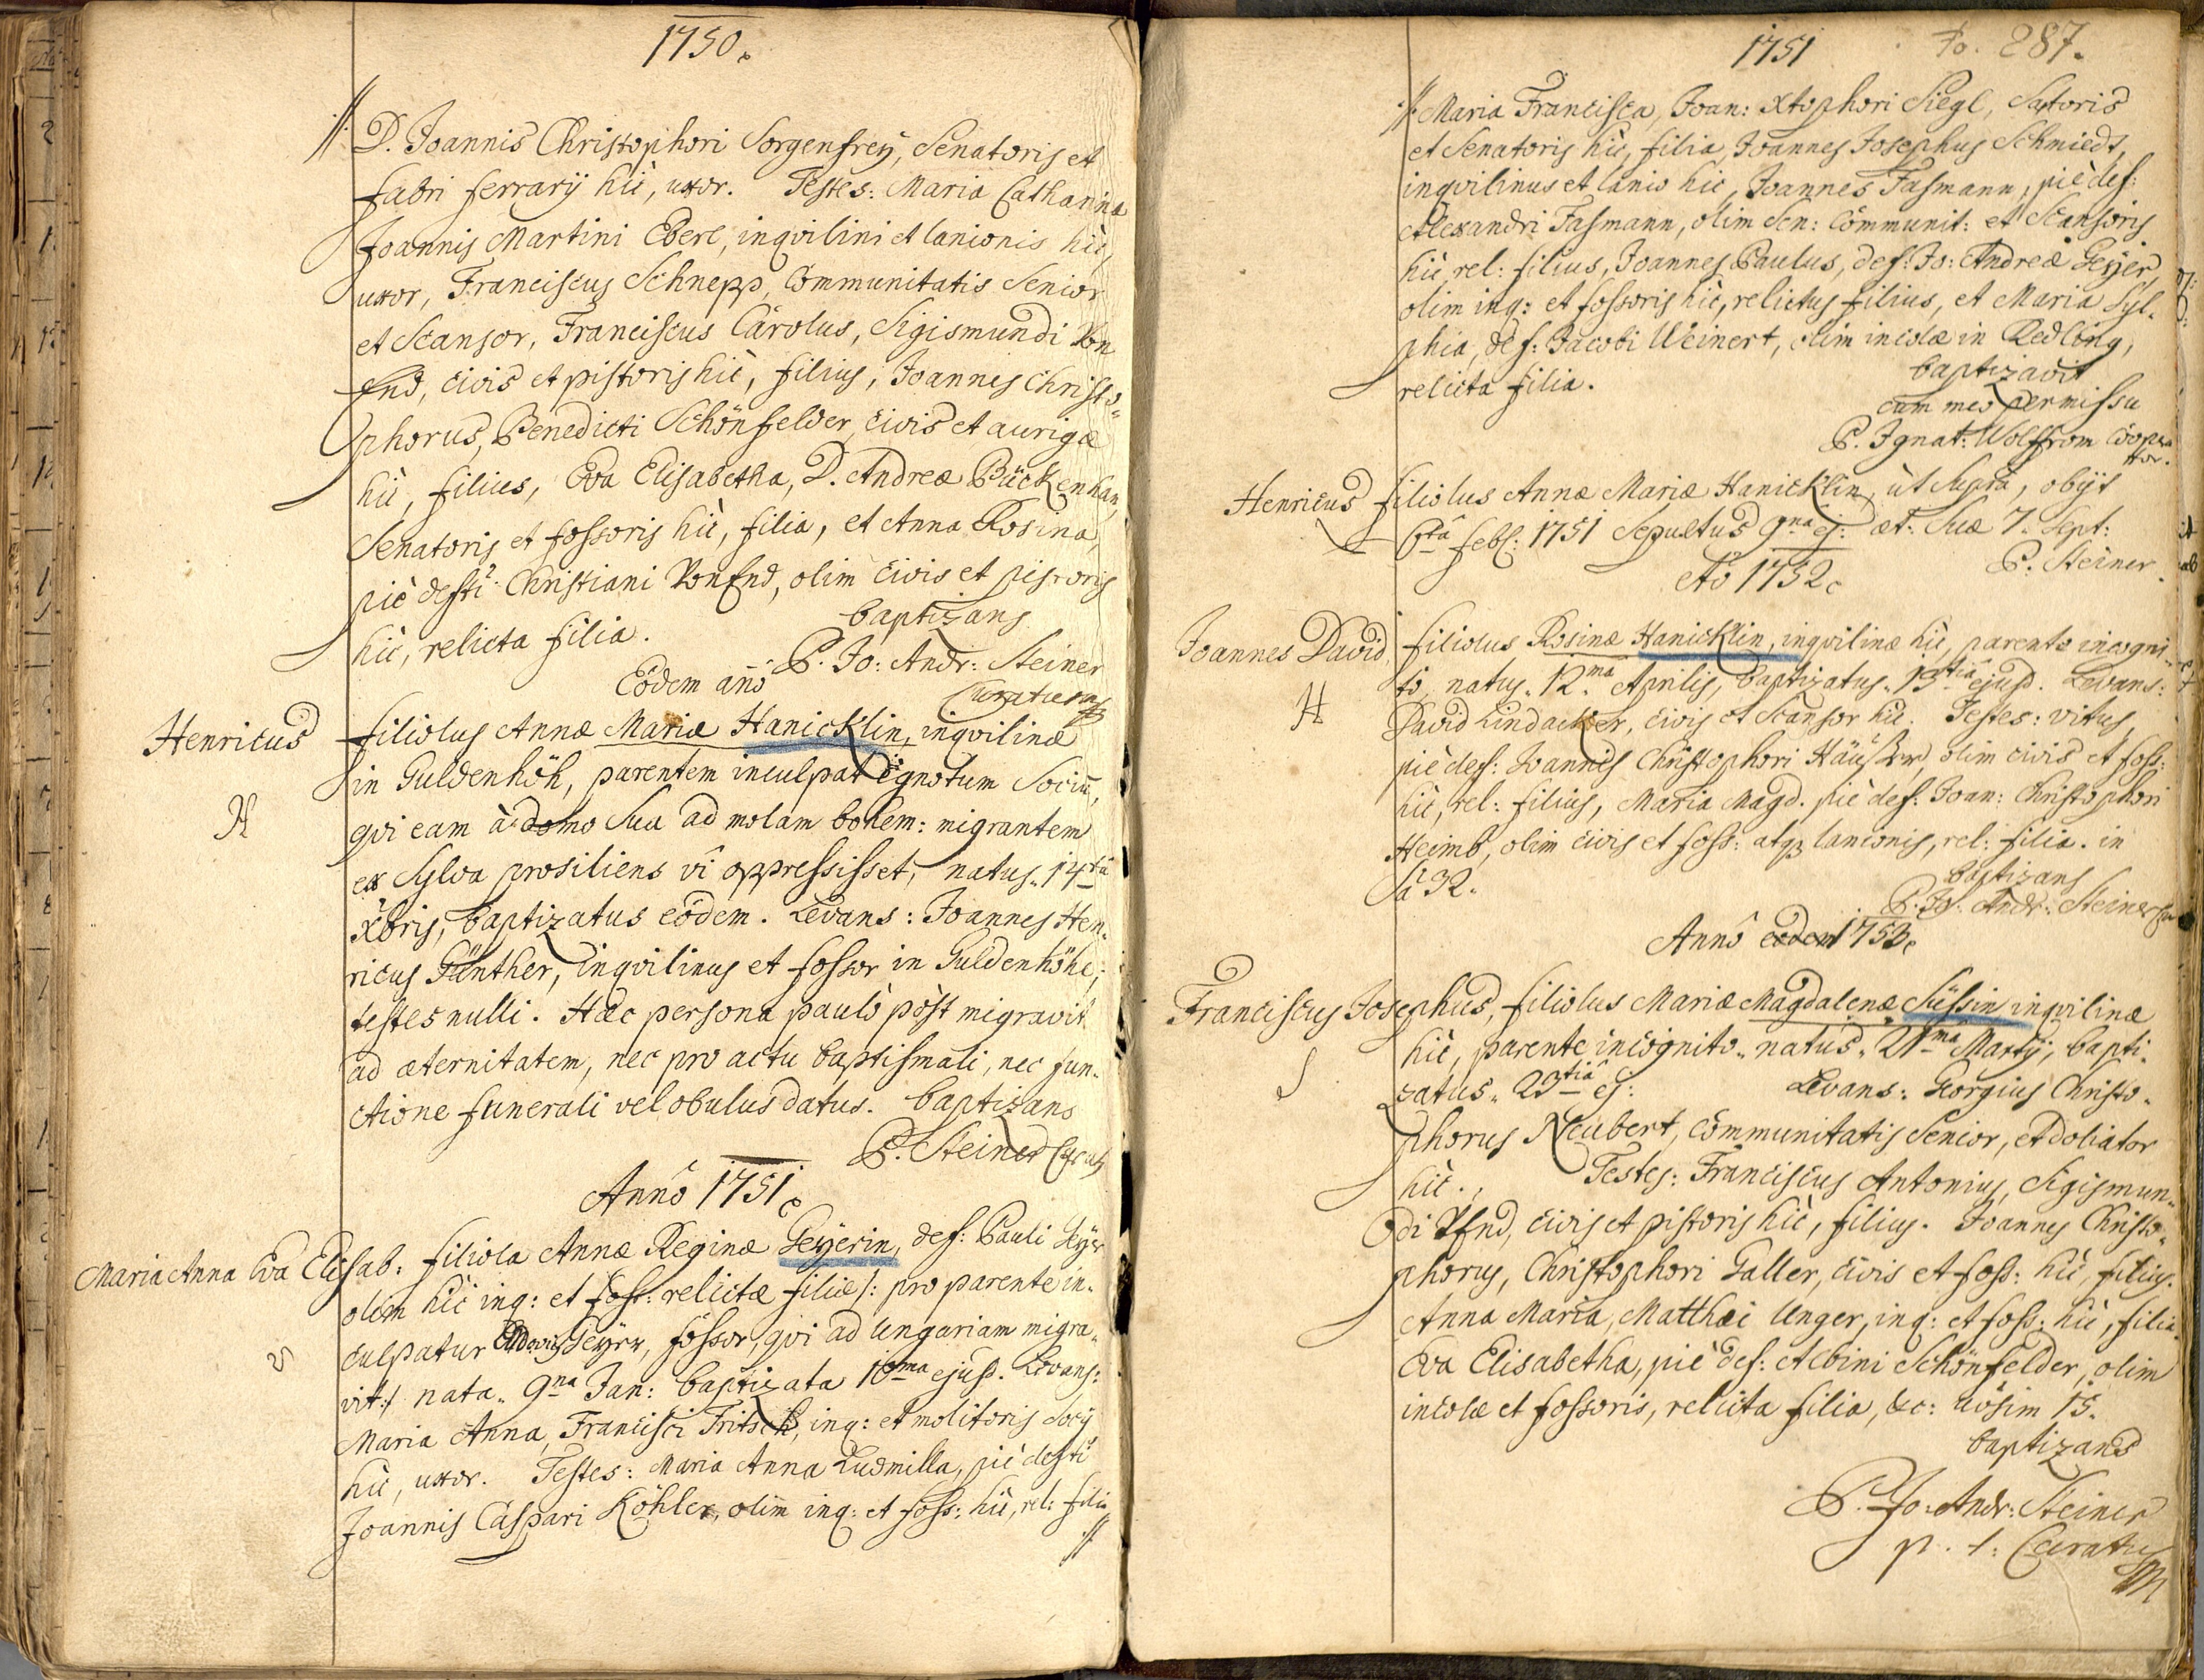 1750.
D. Joannis Christophori Sorgenfreÿ, Senatoris et
fabri ferrarÿ hic, uxor. Testes: Maria Catharina
Joannis Martini Eberl, inqvilini et lanionis hic
uxor, Franciscus Schnepp, Communitatis Senior
et Scansor, Franciscus Carolus, Sigismundi Von
End, civis et pistoris hic, filius, Joannes Christo-
phorus, Benedicti Schönfelder, civis et aurigæ
hic, filius, Eva Elisabetha, D. Andreæ Bückenhan,
Senatoris et fossoris hic, filia, et Anna Rosina,
piè defti Christiani VonEnd, olim civis et pistoris
hic, relicta filia. baptizans
P. Jo: Andr: Steiner
Eôdem anô Curatus
Henricus filiolus Annæ Mariæ Hanicklin, inqvilinæ
in Guldenhöh, parentem inculpat ignotum Sociū,
H qvi eam à domo Sua ad molam bohem: migrantem
ex Sylva prosiliens vi oppressisset, natus. 14ta
Xbris, baptizatus eôdem. Levans: Joannes Hen-
ricus Günther, inqvilinus et fossor in Guldenhöhe;
testes nulli. Hæc persona paulò pòst migravit
ad æternitatem, nec pro actu baptismali, nec fun-
ctione funerali vel obulus datus. baptizans
P. Steiner Curatus
Annô 1751.
Maria Anna Eva Elisab: filiola Annæ Reginæ Geÿerin, def: Pauli Geÿer
olim hic inq: et foss: relictæ filiæ /: pro parente in-
culpatur Geÿer, fossor, qvi ad Ungariam migra-
vit:/ nata. 9na Jan: baptizata 10ma ejusd. Levans:
Maria Anna, Francisci Fritsch, inq: et molitoris Socÿ
hic, uxor. Testes: Maria Anna Ludmilla, piè defti
Joannis Caspari Köhler, olim inq: et foss: hic, rel: filia
1751 fo. 287.
Maria Francisca, Joan: Xtophori Siegl, Sartoris
et Senatoris hic, filia, Joannes Josephus Schmiedt,
inqvilinus et lanio hic, Joannes Fasmann, piè def:
Alexandri Fasmann, olim Sen: Communit: et Scansoris
hic, rel: filius, Joannes Paulus, def: Jo: Andreæ Geÿer,
olim inq: et fossoris hic, relictus filius, et Maria Sy̆l-
phia, def: Jacobi Weinert, olim incolæ in Redling,
relicta filia. baptizavit
cum meo permissu
P. Ignat: Wolffrom Coopera
tor.
Henricus filiolus Annæ Mariæ Hanicklin, ùt Supra, obÿt
6tâ febr: 1751 Sepultus 9na ej: æt: Suæ 7. Sept:
P. Steiner
Aô 1752.
Joannes David, filiolus Rosinæ Hanicklin, inqvilinæ hic, parente incogni-
to, natus. 12.ma Aprilis, baptizatus. 13tiâ ejusd. Levans:
H David Lindacker, civis et Scansor hic. Testes: vitus,
piè def: Joannis Christophori Häusler, olim civis et foss:
hic, rel: filius, Maria Magd. piè def: Joan: Christophori
Heimb, olim civis et foss: atqz lanionis, rel: filia. in
32. baptizans
P. Jo: Andr: Steiner
Annô eodem 1753.
Franciscus Josephus, filiolus Mariæ Magdalenæ Süssin inqvilinæ
hic, parente incognito. natus. 21ma Martÿ, bapti-
S zatus. 23tiâ ej: Levans: Georgius Christo-
phorus Neubert, Communitatis Senior, et doliator
hic. Testes: Franciscus Antonius, Sigismun-
di VEnd, civis et pistoris hic, filius. Joannes Christo-
phorus, Christophori Galler, civis et foss: hic, filius.
Anna Maria, Matthæi Unger, inq: et foss: hic, filia.
Eva Elisabetha, piè def: Albini Schönfelder, olim
incolæ et fossoris, relicta filia, &c: 15.
baptizans
P. Jo: Andr: Steiner
p. t: Curatus